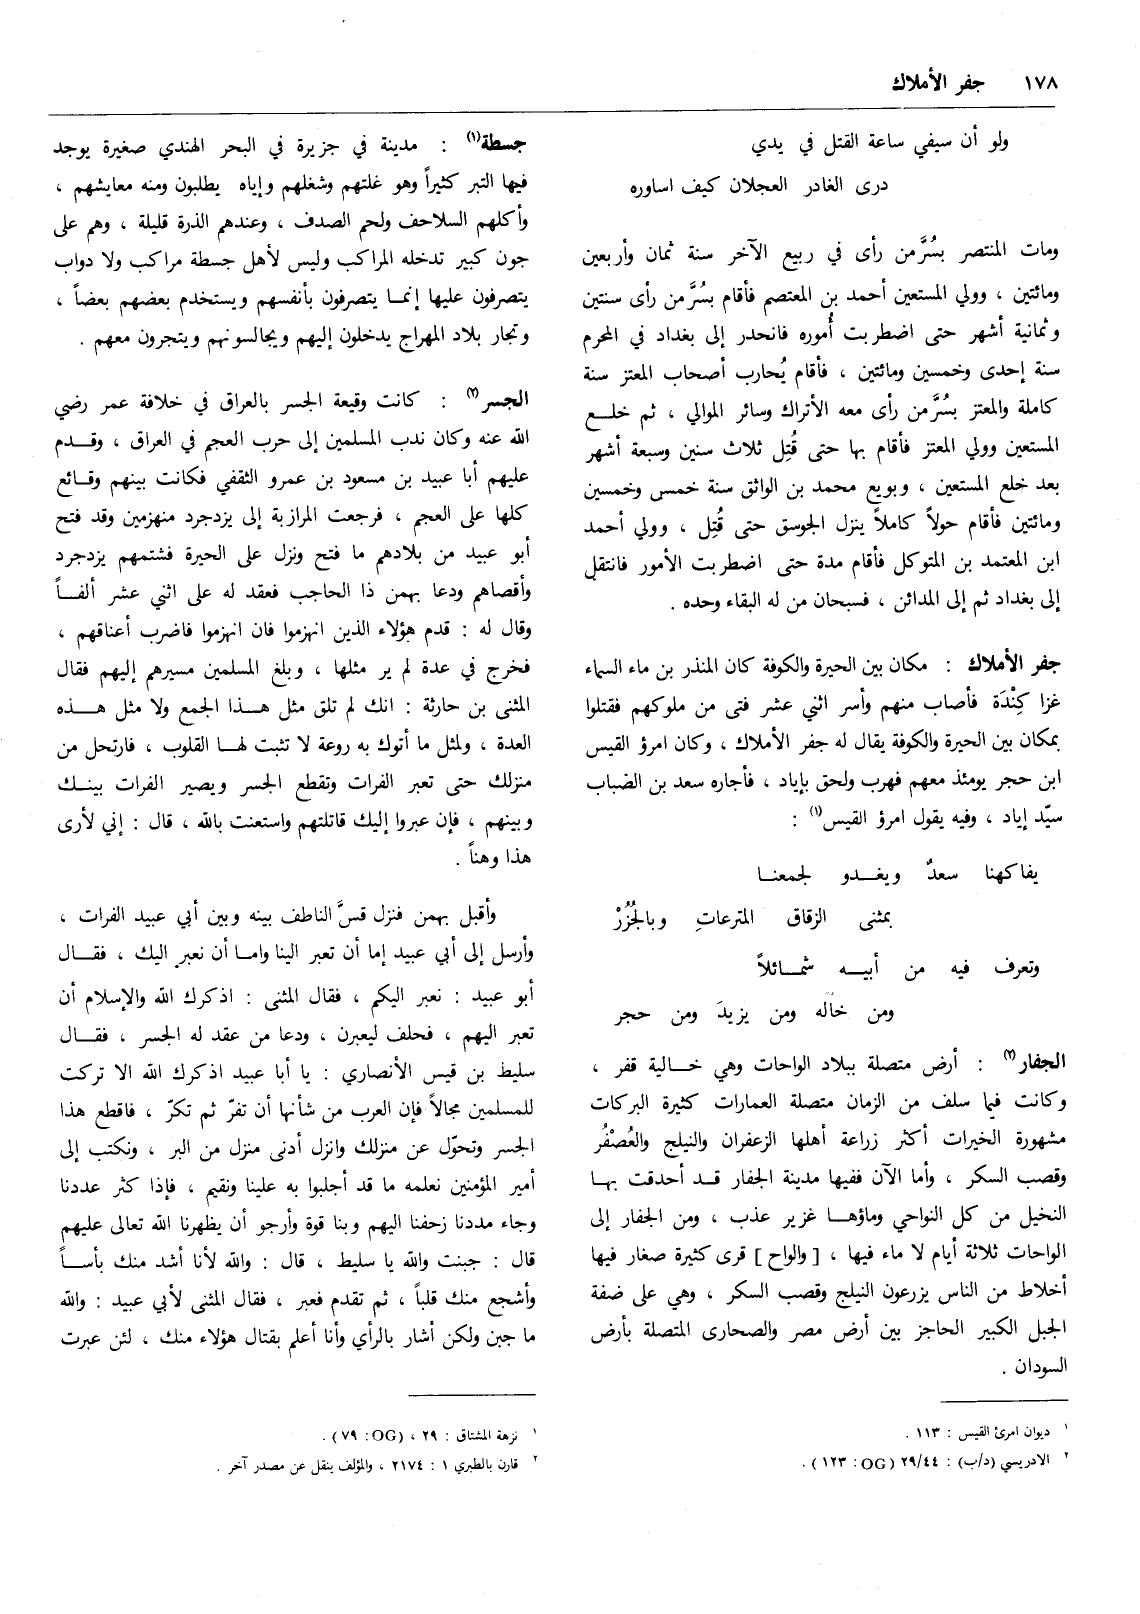 ١٧٨ جفر الأملاك
ولو أن سيفي ساعة القتل في يدي
درى الغادر العجلان كيف اساوره
ومات المنتصر بسُرَّمن رأى في ربيع الآخر سنة ثمان وأربعين
ومائتين ، وولي المستعين أحمد بن المعتصم فأقام بسُرَّ من رأى سنتين
وثمانية أشهر حتى اضطربت أُموره فانحدر إلى بغداد في المحرم
سنة إحدى وخمسين ومائتين ، فأقام يُحارب أصحاب المعتز سنة
كاملة والمعتز بسُرَّ من رأى معه الأتراك وسائر الموالي ، ثم خلع
المستعين وولي المعتز فأقام بها حتى قُتِل ثلاث سنين وسبعة أشهر
بعد خلع المستعين ، وبويع محمد بن الواثق سنة خمس وخمسين
ومائتين فأقام حولاً كاملاً ينزل الجوسق حتى قُتِل ، وولي أحمد
ابن المعتمد بن المتوكل فأقام مدة حتى اضطربت الأمور فانتقل
إلى بغداد ثم إلى المدائن ، فسبحان من له البقاء وحده .
جفر الأملاك : مكان بين الحيرة والكوفة كان المنذر بن ماء السماء
غزا كِنْدَة فأصاب منهم وأسر اثني عشر فتى من ملوكهم فقتلوا
بمكان بين الحيرة والكوفة يقال له جفر الأملاك ، وكان امرؤ القيس
ابن حجر يومئذ معهم فهرب ولحق بإياد ، فأجاره سعد بن الضباب
سيّد إياد ، وفيه يقول امرؤ القيس(١) :
يفاكهنا سعدٌ ويغدو لجمعنا
بمثنى الزقاق المترعاتِ وبالجُزُرْ
وتعرف فيه من أبيه شمائلاً
ومن خاله ومن يزيدَ ومن حجر
الجفار(٢) : أرض متصلة ببلاد الواحات وهي خالية قفر ،
وكانت فيما سلف من الزمان متصلة العمارات كثيرة البركات
مشهورة الخيرات أكثر زراعة أهلها الزعفران والنيلج والعُصْفُر
وقصب السكر ، وأما الآن ففيها مدينة الجفار قد أحدقت بها
النخيل من كل النواحي وماؤها غزير عذب ، ومن الجفار إلى
الواحات ثلاثة أيام لا ماء فيها ، [ والواح ] قرى كثيرة صغار فيها
أخلاط من الناس يزرعون النيلج وقصب السكر ، وهي على ضفة
الجبل الكبير الحاجز بين أرض مصر والصحارى المتصلة بأرض
السودان .
١ ديوان امرئ القيس : ١١٣ .
٢ الادريسي (د/ب) : ٢٩/٤٤ (OG : ١٢٣) .
جسطة(١) : مدينة في جزيرة في البحر الهندي صغيرة يوجد
فيها التبر كثيراً وهو غلتهم وشغلهم وإياه يطلبون ومنه معايشهم ،
وأكلهم السلاحف ولحم الصدف ، وعندهم الذرة قليلة ، وهم على
جون كبير تدخله المراكب وليس لأهل جسطة مراكب ولا دواب
يتصرفون عليها إنما يتصرفون بأنفسهم ويستخدم بعضهم بعضاً ،
وتجار بلاد المهراج يدخلون إليهم ويجالسونهم ويتجرون معهم .
الجسر(٢) : كانت وقيعة الجسر بالعراق في خلافة عمر رضي
الله عنه وكان ندب المسلمين إلى حرب العجم في العراق ، وقدم
عليهم أبا عبيد بن مسعود بن عمرو الثقفي فكانت بينهم وقائع
كلها على العجم ، فرجعت المرازبة إلى يزدجرد منهزمين وقد فتح
أبو عبيد من بلادهم ما فتح ونزل على الحيرة فشتمهم يزدجرد
وأقصاهم ودعا بهمن ذا الحاجب فعقد له على اثني عشر ألفاً
وقال له : قدم هؤلاء الذين انهزموا فان انهزموا فاضرب أعناقهم ،
فخرج في عدة لم ير مثلها ، وبلغ المسلمين مسيرهم إليهم فقال
المثنى بن حارثة : انك لم تلق مثل هذا الجمع ولا مثل هذه
العدة ، ولمثل ما أتوك به روعة لا تثبت لها القلوب ، فارتحل من
منزلك حتى تعبر الفرات وتقطع الجسر ويصير الفرات بينك
وبينهم ، فإن عبروا إليك قاتلتهم واستعنت بالله ، قال : إني لأرى
هذا وهناً .
وأقبل بهمن فنزل قسَّ الناطف بينه وبين أبي عبيد الفرات ،
وأرسل إلى أبي عبيد إما أن تعبر الينا واما أن نعبر اليك ، فقال
أبو عبيد : نعبر اليكم ، فقال المثنى : اذكرك الله والإسلام أن
تعبر اليهم ، فحلف ليعبرن ، ودعا من عقد له الجسر ، فقال
سليط بن قيس الأنصاري : يا أبا عبيد اذكرك الله الا تركت
للمسلمين مجالاً فإن العرب من شأنها أن تفرّ ثم تكرّ ، فاقطع هذا
الجسر وتحوّل عن منزلك وانزل أدنى منزل من البر ، ونكتب إلى
أمير المؤمنين نعلمه ما قد أجلبوا به علينا ونقيم ، فإذا كثر عددنا
وجاء مددنا زحفنا اليهم وبنا قوة وأرجو أن يظهرنا الله تعالى عليهم
قال : جبنت والله يا سليط ، قال : والله لأنا أشد منك بأساً
وأشجع منك قلباً ، ثم تقدم فعبر ، فقال المثنى لأبي عبيد : والله
ما جبن ولكن أشار بالرأي وأنا أعلم بقتال هؤلاء منك ، لئن عبرت
١ نزهة المشتاق : ٢٩ ، (OG : ٧٩) .
٢ قارن بالطبري ١ : ٢١٧٤ ، والمؤلف ينقل عن مصدر آخر .